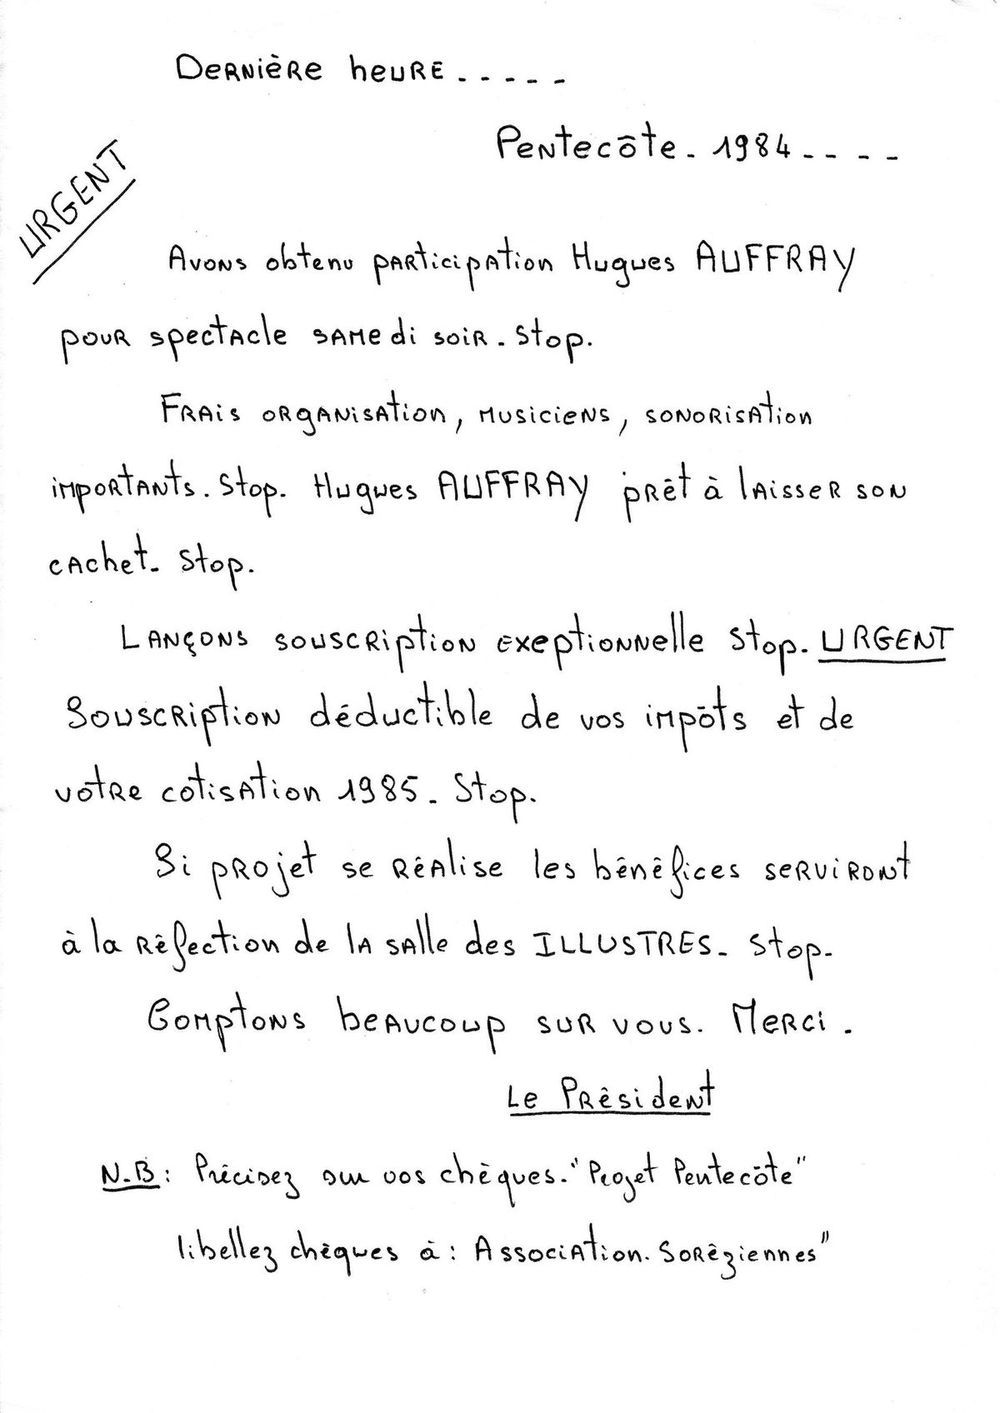 Dernière heure . . . . .
Pentecôte. 1984 . . . .
URGENT
Avons obtenu participation Hugues AUFFRAY
pour spectacle samedi soir. Stop.
Frais organisation, musiciens, sonorisation
importants. Stop. Hugues AUFFRAY prêt à laisser son
cachet. Stop.
Lançons souscription exeptionnelle Stop. URGENT
Souscription déductible de vos impôts et de
vôtre cotisation 1985. Stop.
Si projet se réalise les bénéfices serviront
à la réfection de la salle des ILLUSTRES. Stop.
Comptons beaucoup sur vous. Merci.
Le Président
N.B : Précisez sur vos chèques. "Projet Pentecôte"
libellez chèques à : Association. Soréziennes"